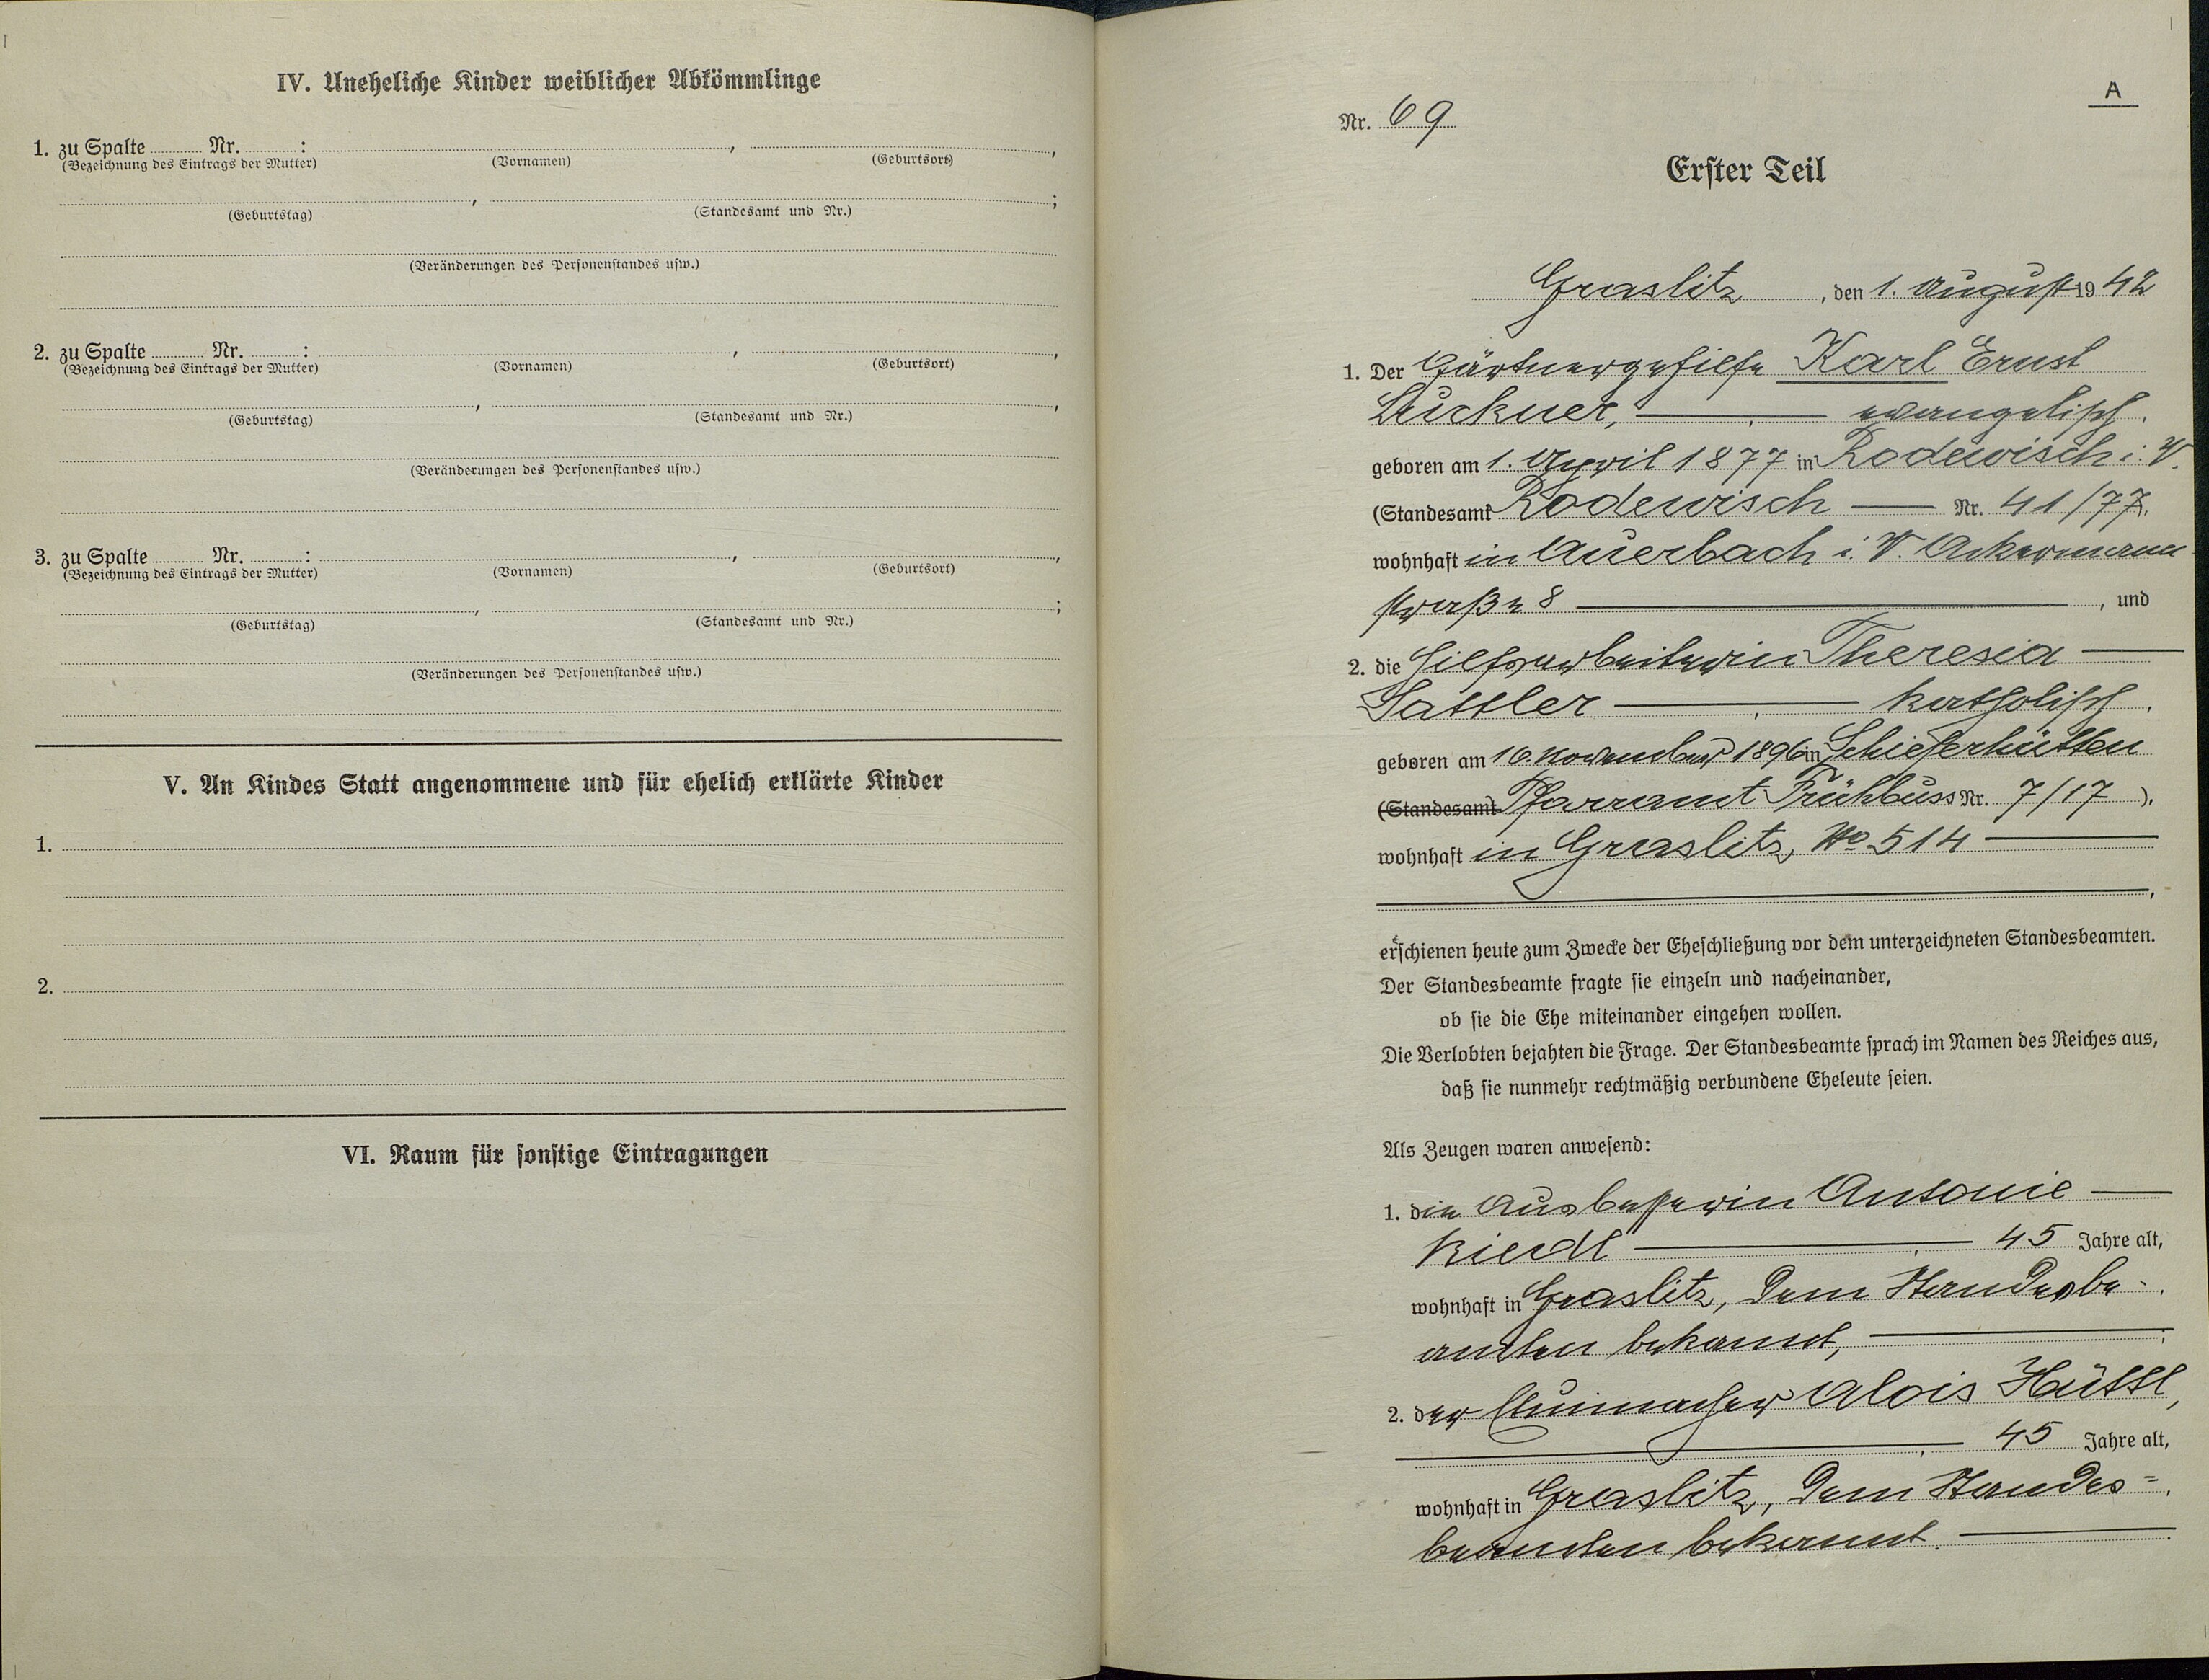 IV. Uneheliche Kinder weiblicher Abkömmlinge
1. zu Spalte ........ Nr. ........ : ........ , ........ ,
(Bezeichnung des Eintrags der Mutter) (Vornamen) (Geburtsort)
........ , ........ ;
(Geburtstag) (Standesamt und Nr.)
(Veränderungen des Personenstandes usw.)
2. zu Spalte ........ Nr. ........ : ........ , ........ ,
(Bezeichnung des Eintrags der Mutter) (Vornamen) (Geburtsort)
........ , ........ ,
(Geburtstag) (Standesamt und Nr.)
(Veränderungen des Personenstandes usw.)
3. zu Spalte ........ Nr. ........ : ........ , ........ ,
(Bezeichnung des Eintrags der Mutter) (Vornamen) (Geburtsort)
........ , ........ ;
(Geburtstag) (Standesamt und Nr.)
(Veränderungen des Personenstandes usw.)
V. An Kindes Statt angenommene und für ehelich erklärte Kinder
1.
2.
VI. Raum für sonstige Eintragungen
A
Nr. 69
Erster Teil
Graslitz, den 1. August 1942
1. Der Gärtnergehilfe Karl Ernst
Luckner, evangelisch,
geboren am 1. April 1877 in Rodewisch i. V.
(Standesamt Rodewisch — Nr. 41/77.
wohnhaft in Auerbach i. V. Ackermann
straße 8 —, und
2. die Hilfsarbeiterin Theresia —
Sattler — katholisch,
geboren am 16. November 1896 in Schieferhütten
(Standesamt Pfarramt Frühbuss Nr. 7/17),
wohnhaft in Graslitz, No 514 —
erschienen heute zum Zwecke der Eheschließung vor dem unterzeichneten Standesbeamten.
Der Standesbeamte fragte sie einzeln und nacheinander,
ob sie die Ehe miteinander eingehen wollen.
Die Verlobten bejahten die Frage. Der Standesbeamte sprach im Namen des Reiches aus,
daß sie nunmehr rechtmäßig verbundene Eheleute seien.
Als Zeugen waren anwesend:
1. die Ausbesserin Antonie —
Riedl — , 45 Jahre alt,
wohnhaft in Graslitz, dem Standesbe-
amten bekannt, —
2. der Alois Hüttl,
— , 45 Jahre alt,
wohnhaft in Graslitz, dem Standes=
beamten bekannt. —